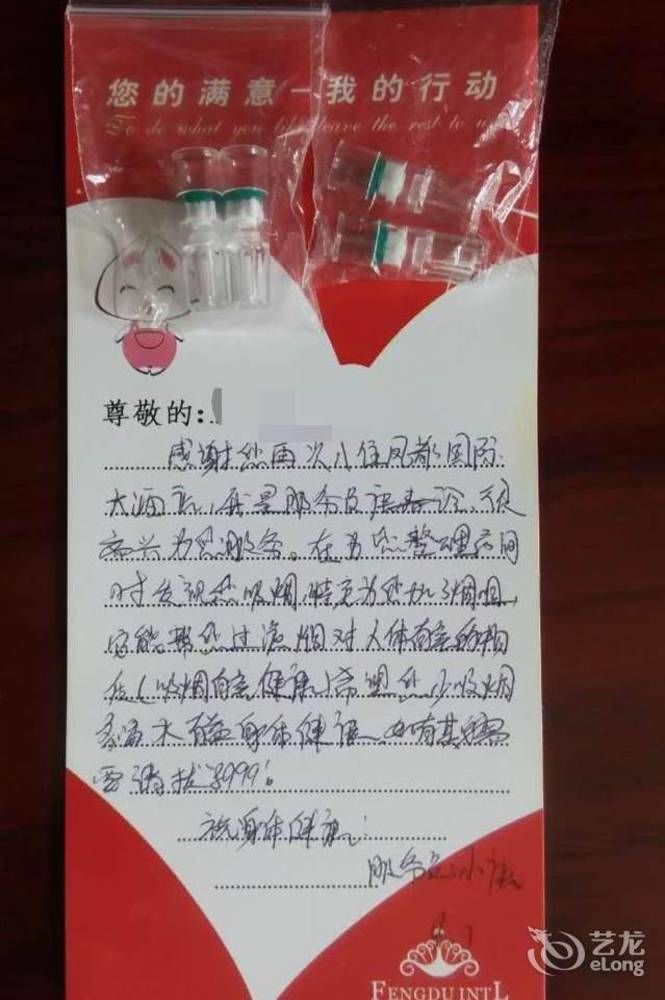 您的满意—我的行动
To do what you like leave the rest to us
尊敬的:
感谢您再次入住凤都国际
大酒店,我是服务员 很
高兴为您服务。在为您整理房间
时发现您吸烟,特意为您加了烟咀,
它能帮您过滤烟对人体有害的物
质(吸烟有害健康)希望您少吸烟
多喝水 身体健康,如有其它需
要请拨999!
祝身体健康!
服务员:小
6.7
FENGDU INT'L
艺龙
eLong